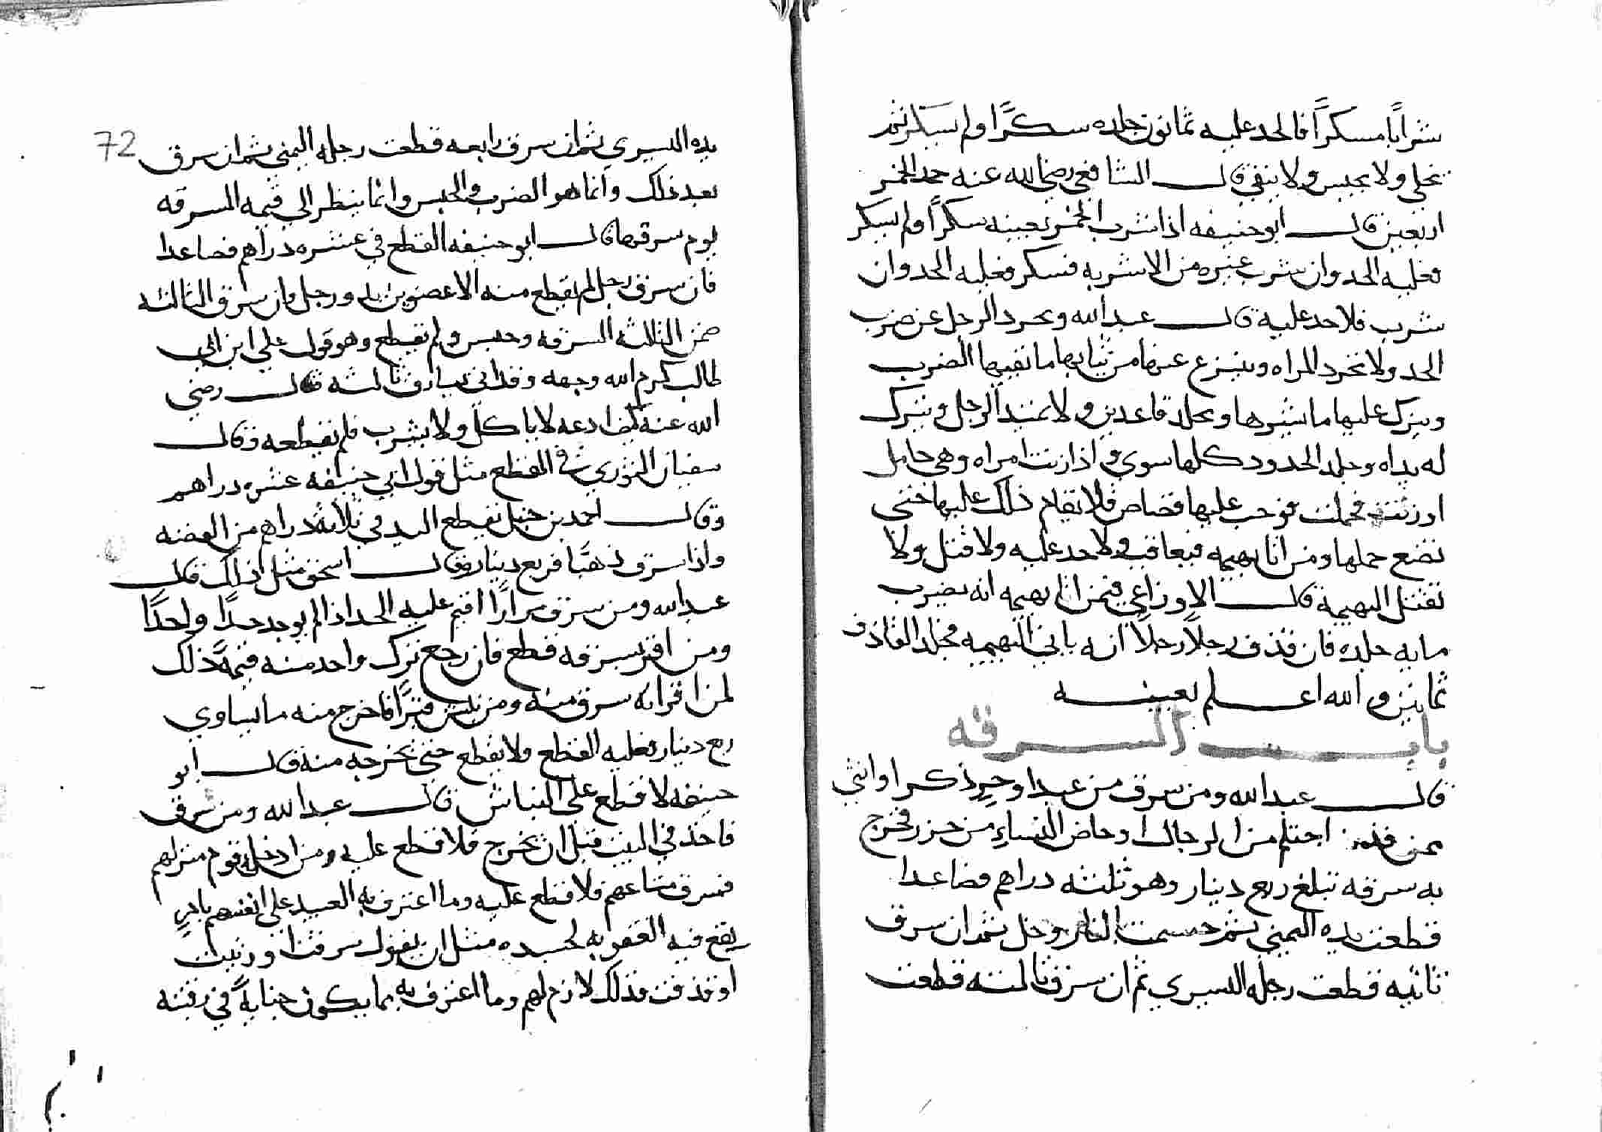 شرابا مسكرًا فالحد عليه ثمانون جلده سكرًا ولم يسكر ثم
يخلي ولا يحبس ولا ينفي قال الشافعي رضي الله عنه حد الخمر
اربعين قال ابو حنيفه اذا شرب الخمر بعينه سكرًا ولم يسكر
فعليه الحد وان شرب غيره من الاشربه فسكر فعليه الحد وان
شرب فلا حد عليه قال عبد الله ويجرد الرجل عن ضرب
الحد ولا تجرد المراه وينزع عنها من ثيابها ما يقيها الضرب
ويترك عليها ما يسترها ويجلد قاعدين ولا يمتد الرجل ويترك
له يداه وجلد الحدود كلها سوي واذا زنت امراه وهي حامل
او زنت فحملت فوجب عليها قصاص فلا يقام ذلك عليها حتي
تضع حملها ومن اتا بهيمه فيعاقب ولا حد عليه ولا قتل ولا
تقتل البهيمة قال الاوزاعي فيمن اتا بهيمه انه يضرب
مايه جلده فان قذف رجلاً رجلاً انه ياتي البهيمه فيجلد القاذف
ثمانين والله اعلم بغيبه
باب السرقه
قال عبد الله ومن سرق من عبد او حر ذكر او انثي
ممن قد احتلم من الرجال او حاض النساء من حرز فخرج
به سرقه تبلغ ربع دينار وهو ثلثه دراهم فصاعدا
قطعت يده اليمني ثم حسمت بالنار وخل ثم ان سرق
ثانيه قطعت رجله اليسري ثم ان سرق ثالثه قطعت
72
يده اليسري ثم ان سرق رابعه قطعت رجله اليمني ثم ان سرق
بعد ذلك وانما هو الضرب والحبس وانما ينظر الي قيمه السرقه
يوم سرقها قال ابو حنيفه القطع في عشره دراهم فصاعدا
فان سرق رجل لم يقطع منه الا عضوين يد ورجل وان سرق الثالثه
ضمن الثالثه السرقه وحبس ولم يقطع وهو قول علي ابن ابي
طالب كرم الله وجهه وقد اتي بسارق ثالثه قال رضي
الله عنه ادعه لا ياكل ولا يشرب فلم يقطعه وقال
سفيان الثوري في القطع مثل قول ابي حنيفه عشره دراهم
وقال احمد بن حنبل يقطع اليد في ثلاثه دراهم من الفضه
واذا سرق ذهبًا فربع دينار وقال اسحق مثل ذلك قال
عبد الله ومن سرق مرارًا اقيم عليه الحد اذا لم يوجد حدًا واحدًا
ومن اقر بسرقه قطع فان رجع ترك واخد منه قيمة ذلك
لمن اقر انه سرق منه ومن نبش قبرًا فاخرج منه ما يساوي
ربع دينار فعليه القطع ولا يقطع حتي يخرجه منه قال ابو
حنيفه لا قطع علي النباش قال عبد الله ومن سرق
فاخذ في البيت قبل ان يخرج فلا قطع عليه ومن ادخله قوم منزلهم
فسرق متاعهم فلا قطع عليه وما اعترف به العبيد علي انفسهم بامر
يقع فيه العقوبه لجسده مثل ان يقول سرقت او زنيت
او قذفت فذلك لازم لهم وما اعترف به مما يكون جنايةً في رقبته